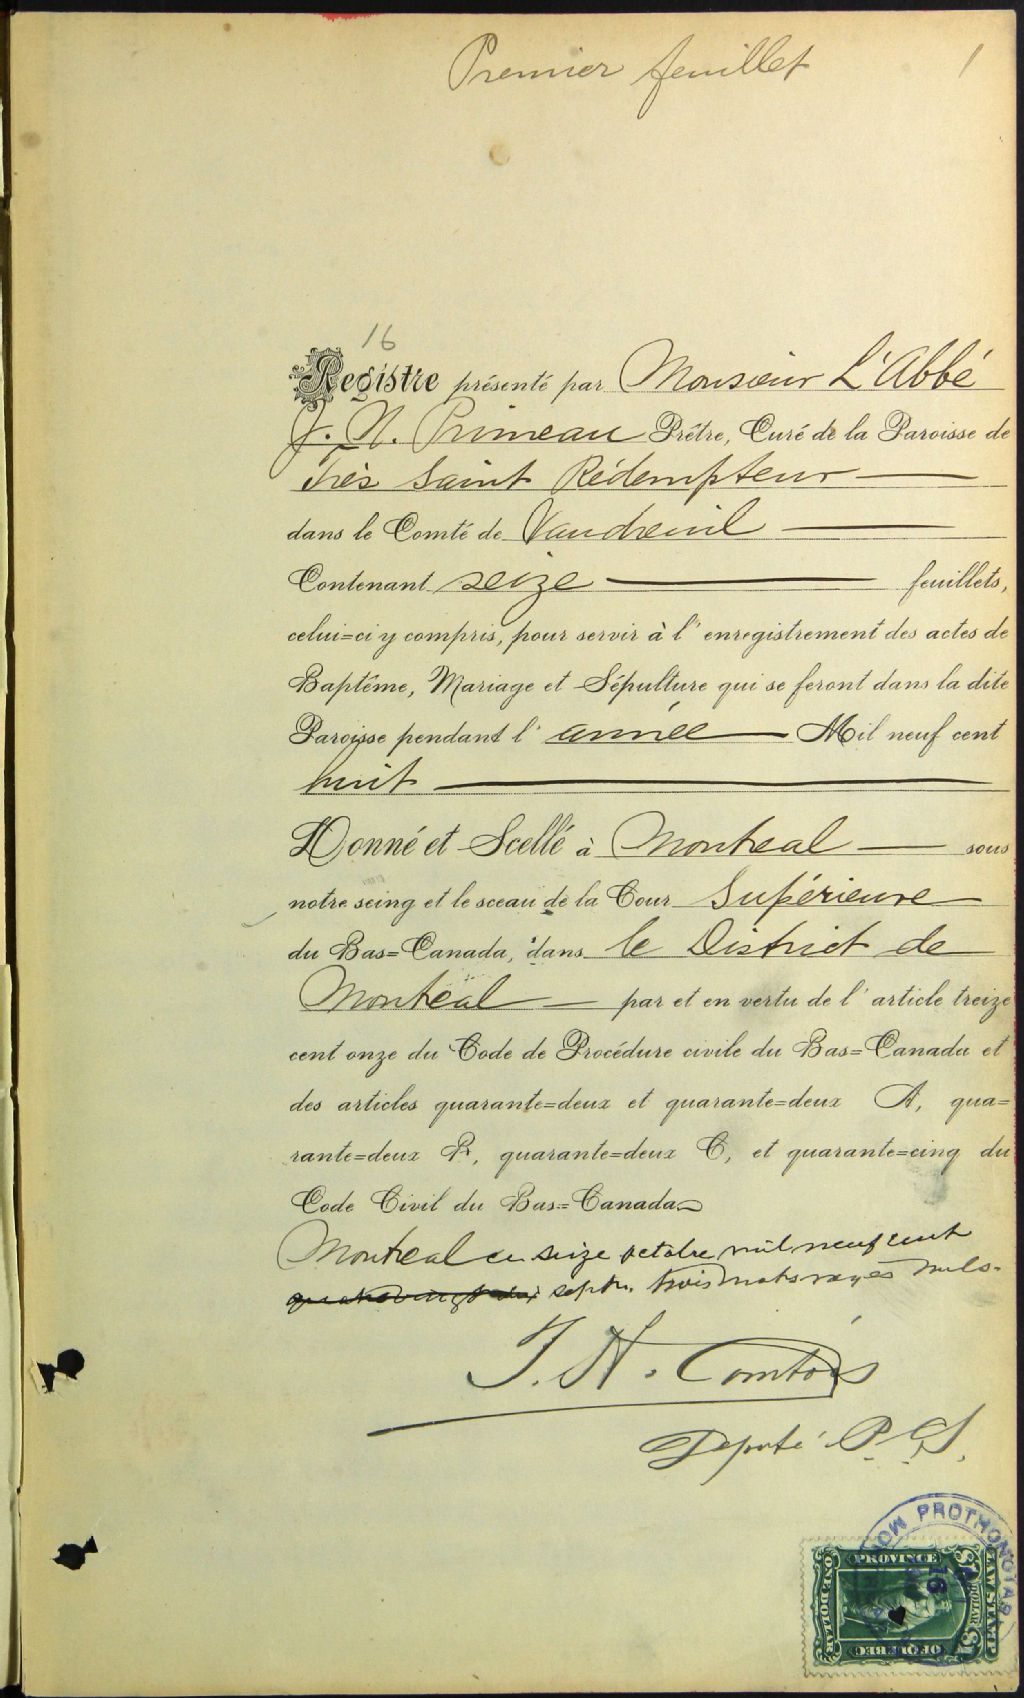 Premier feuillet
1
16
Registre présenté par Monsieur L'Abbé
J. N. Primeau Prêtre, Curé de la Paroisse de
Très Saint Rédempteur
dans le Comté de Vaudreuil
Contenant seize feuillets,
celui=ci y compris, pour servir à l'enregistrement des actes de
Baptême, Mariage et Sépulture qui se feront dans la dite
Paroisse pendant l'année Mil neuf cent
huit
Donné et Scellé à Montreal sous
notre seing et le sceau de la Cour Supérieure
du Bas=Canada, dans le District de
Montréal par et en vertu de l'article treize
cent onze du Code de Procédure civile du Bas=Canada et
des articles quarante=deux et quarante=deux A, qua=
rante=deux B, quarante=deux C, et quarante=cinq du
Code Civil du Bas=Canada
Montreal ce seize octobre mil neuf cent
sept. trois mots rayés nuls.
J. H. Comtois
Député P. C. S.
PROTHONOTAR
PROVINCE
OF QUEBEC
ONE DOLLAR
LAW STAMP
$1
DOLLAR
16